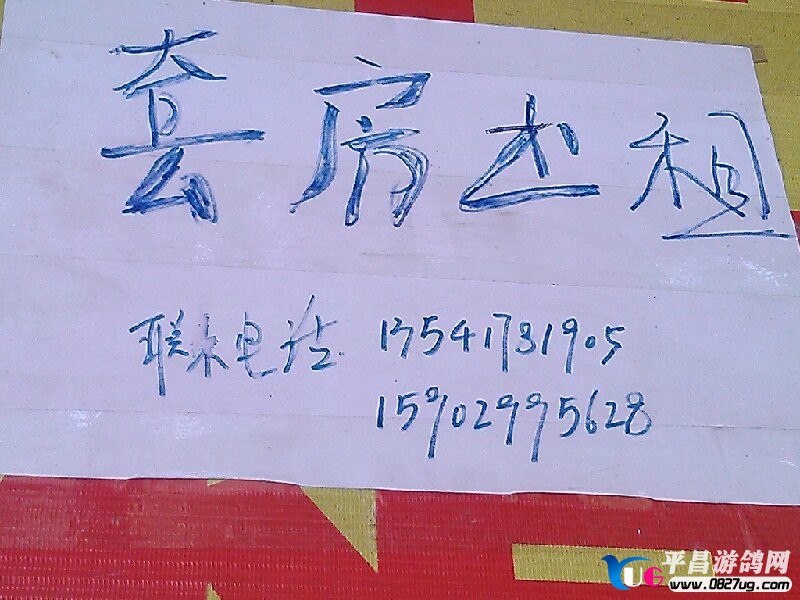 套房出租
联系电话 13541731905
15902995628
平昌游鸽网
YUG www.0827ug.com